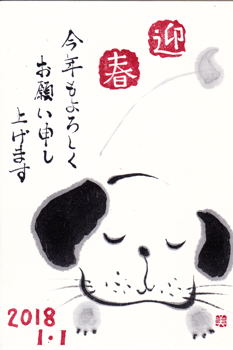 迎
春
今年もよろしく
お願い申し
上げます
2018
1.1